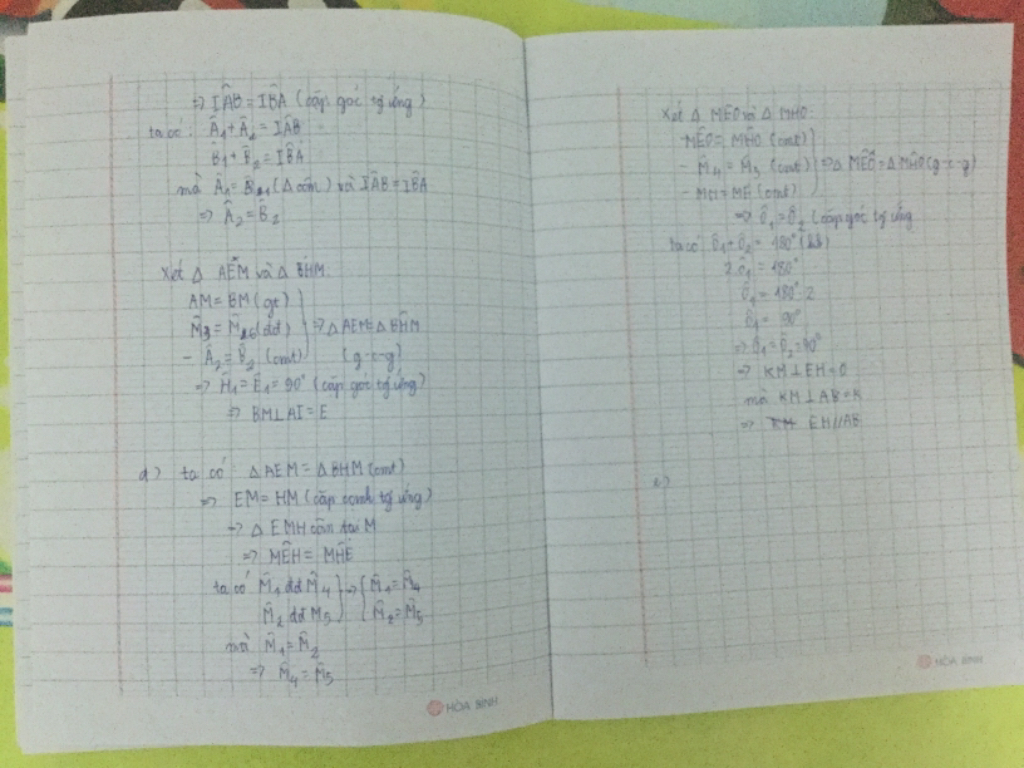 => IÂB = IB̂A (cặp góc tự ứng)
ta có: Â₁ + Â₂ = IÂB
B̂₁ + B̂₂ = IB̂A
mà Â₁ = B̂₁ (Δ cân) và IÂB = IB̂A
=> Â₂ = B̂₂
Xét Δ AEM và Δ BHM:
AM = BM (gt)
M̂₃ = M̂₆ (đđ) => Δ AEM = Δ BHM
- Â₂ = B̂₂ (cmt) (g-c-g)
=> Ĥ₁ = Ê₁ = 90° (cặp góc tự ứng)
=> BM ⊥ AI = E
d) ta có: Δ AEM = Δ BHM (cmt)
=> EM = HM (cặp cạnh tự ứng)
=> Δ EMH cân tại M
=> MÊH = MĤE
ta có M̂₁ đđ M̂₄ => M̂₁ = M̂₄
M̂₂ đđ M̂₅ M̂₂ = M̂₅
mà M̂₁ = M̂₂
=> M̂₄ = M̂₅
HÒA BÌNH
Xét Δ MEO và Δ MHO:
MÊO = MĤO (cmt)
- M̂₄ = M̂₅ (cmt) => Δ MEO = Δ MHO (g-c-g)
- MH = ME (cmt)
=> Ô₁ = Ô₂ (cặp góc tự ứng
ta có Ô₁ + Ô₂ = 180° (kb)
2.Ô₁ = 180°
Ô₁ = 180° : 2
Ô₁ = 90°
=> Ô₁ = Ô₂ = 90°
=> KM ⊥ EH = O
mà KM ⊥ AB = K
=> EH // AB
e)
HÒA BÌNH